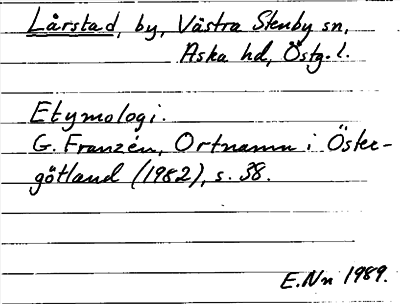 Lårstad, by, Västra Stenby sn,
Aska hd, Östg. l.
Etymologi.
G. Franzén, Ortnamn i Öster-
götland (1982), s. 38.
E.Nn 1989.